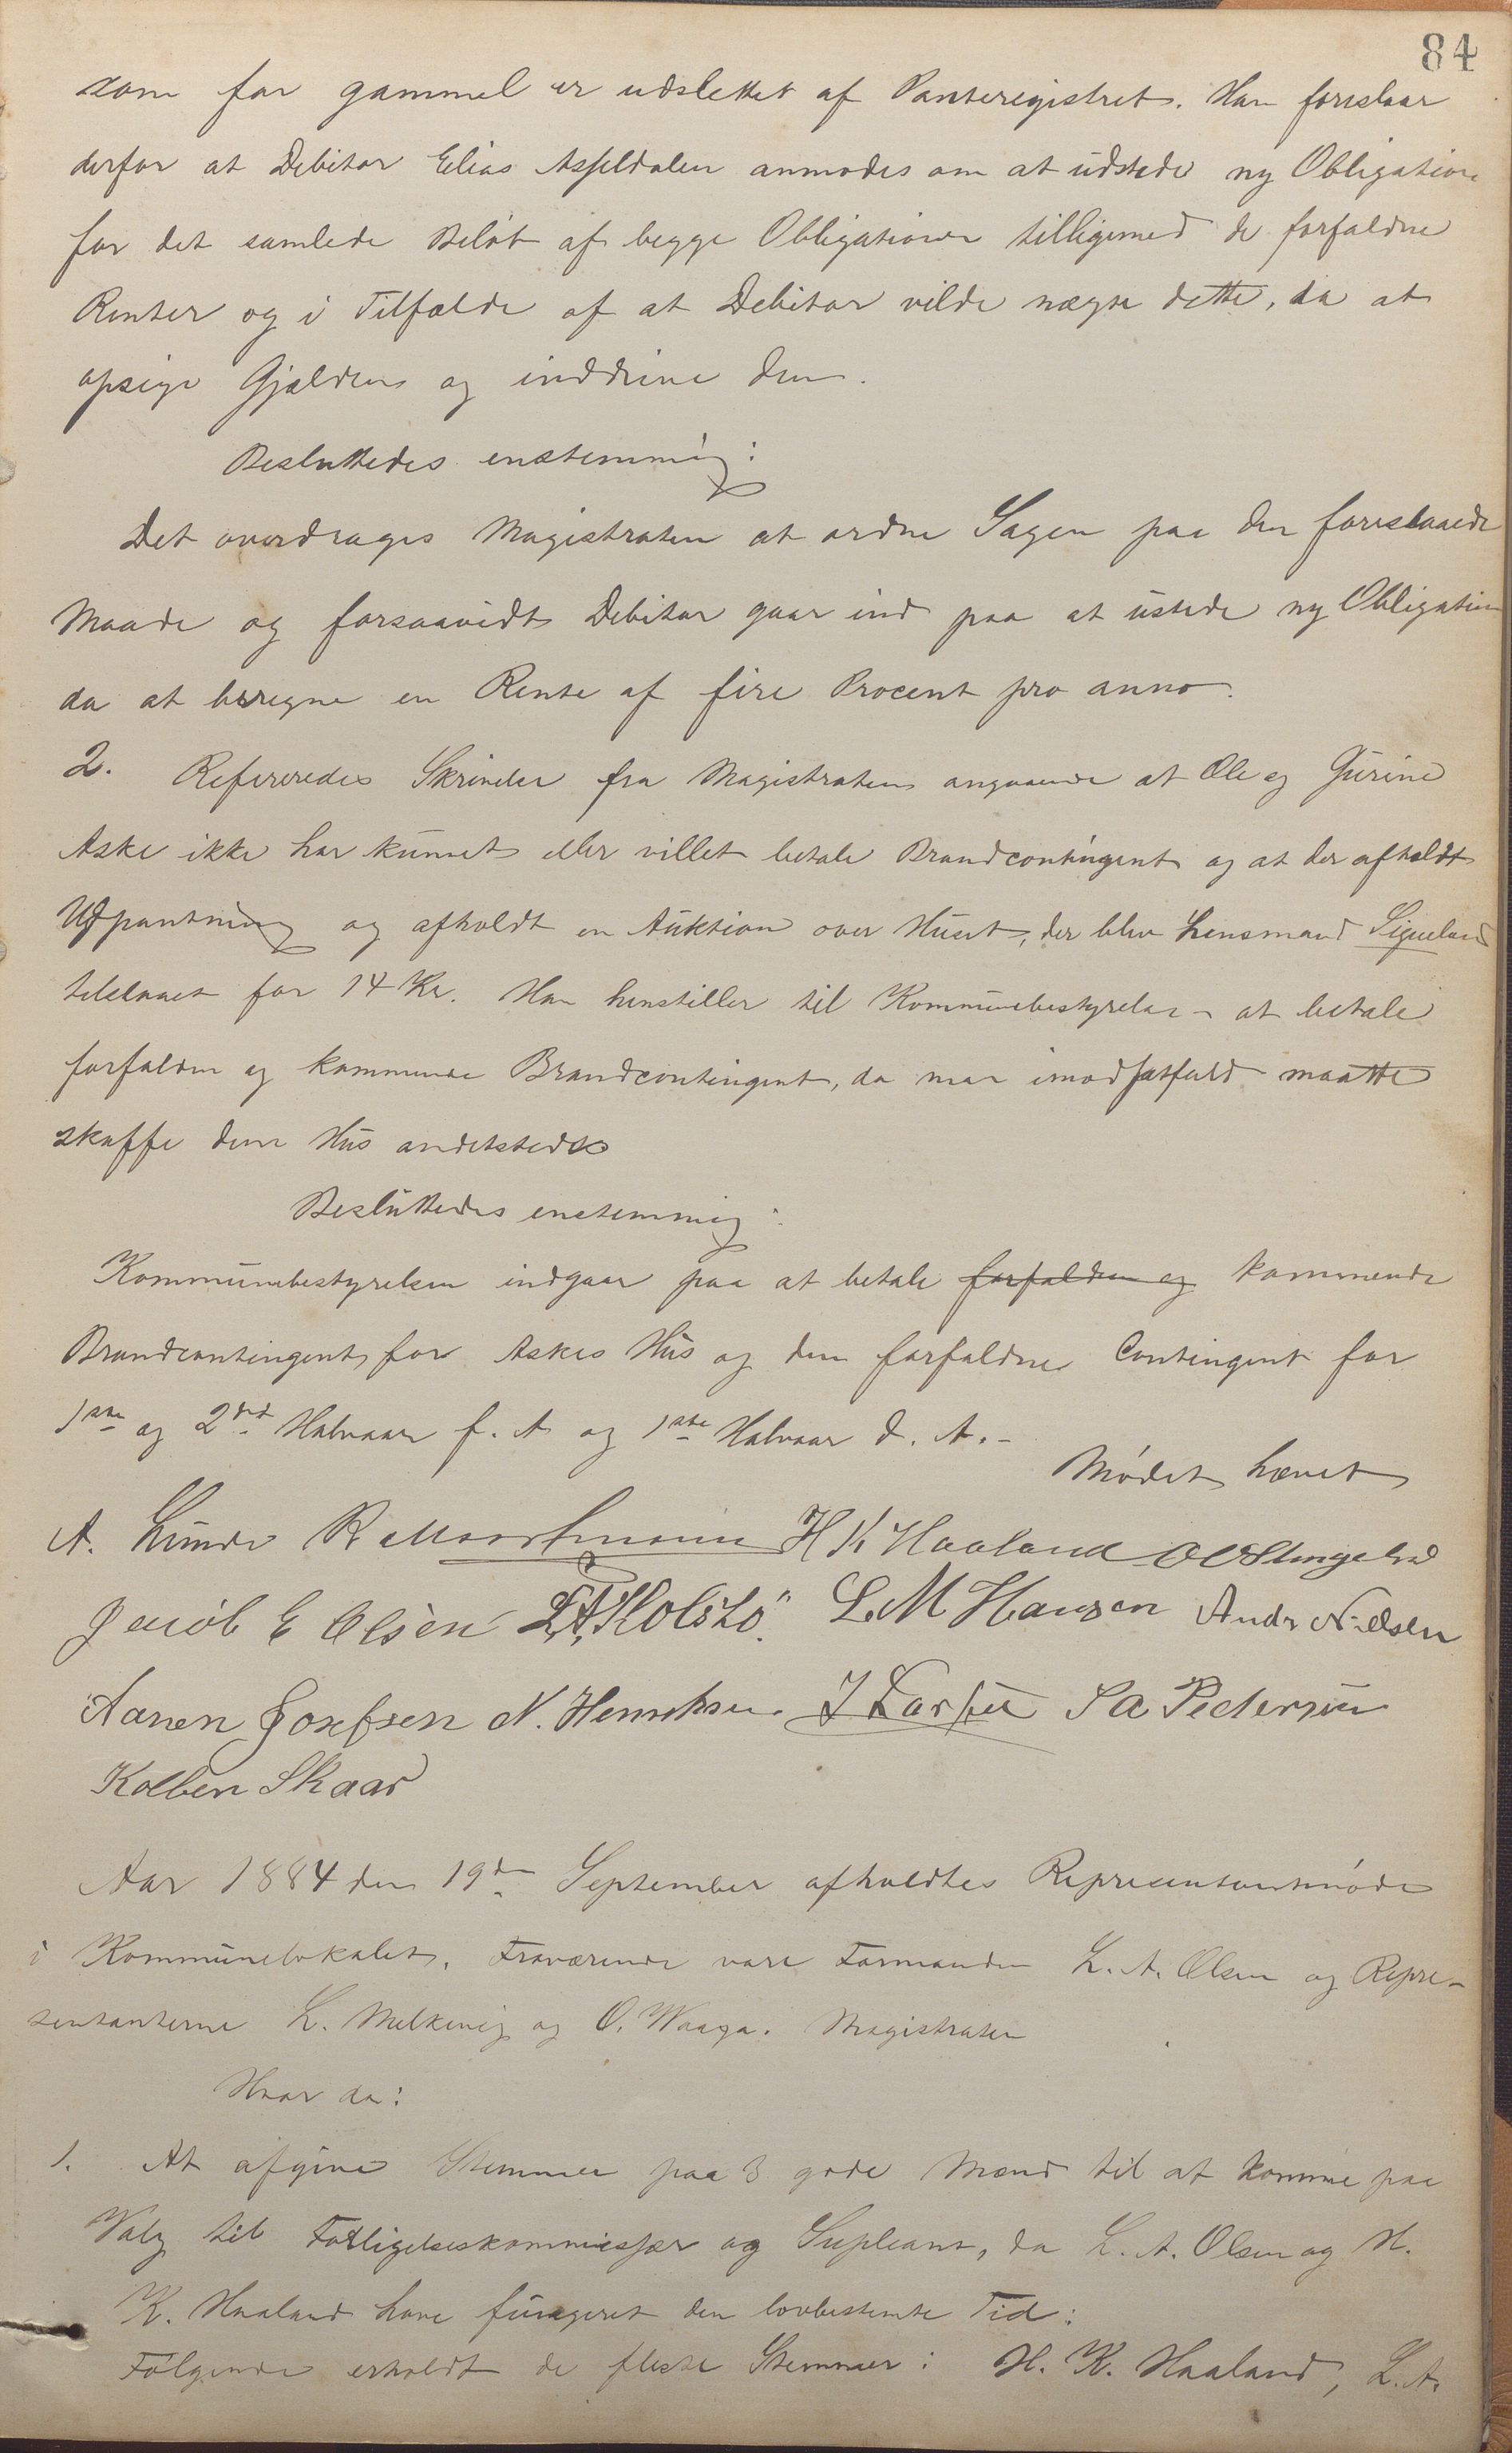 84
som for gammel er udslettet af Panteregistret. Han foreslaar
derfor at Debitor Elias Aspeldalen anmodes om at udstede ny Obligation
for det samlede Beløb af begge Obligationer tilligemed de forfaldne
Renter og i Tilfælde af at Debitor vilde nægte dette, da at
opsige Gjælden og inddrive den.
Besluttedes enstemmig:
Det overdrages Magistraten at ordne Sagen paa den foreslaaede
Maade og forsaavidt Debitor gaar ind paa at ustede ny Obligation
da at beregne en Rente af fire Procent pro anno.
2. Refereredes Skrivelse fra Magistraten angaaende at Ole og Gurine
Aske ikke har kunnet eller villet betale Brandcontingent og at der afholdt
Udpantning og afholdt en Auktion over Huset, der blev Lensmand Sigueland
tilslaaet for 14 Kr. Han henstiller til Kommunebestyrelsen at betale
forfalden og kommende Brandcontingent, da man imodsatfald maatte
skaffe dem Hus andetsteds
Besluttedes enstemmig:
Kommunebestyrelsen indgaar paa at betale forfalden og kommende
Brandcontingent for Askes Hus og den forfaldne Contingent for
1ste og 2det Halvaar f. A og 1ste Halvaar d. A.-
Mødet hævet
A. Lunde R H K Haaland
Jacob E Olsen L.A. Holstø. L. M Hansen Andr Nielsen
Aanen Josefsen N. Henrichsen. J Larsen S A Pedersen
Kolben Skaar
Aar 1884 den 19de September afholdtes Representantmøde
i Kommunelokalet. Fraværende vare Formanden L. A. Olsen og Repre-
sentanterne L. Melkevig og O. Waaga. Magistraten
Hvor da:
1. At afgive Stemmer paa 3 gode Mænd til at komme paa
Valg til Forligelseskommissær og Supleant, da L. A. Olsen og H.
K. Haaland have fungeret den lovbestemte Tid:
Følgende erholdt de fleste Stemmer: H. K. Haaland, L. A.